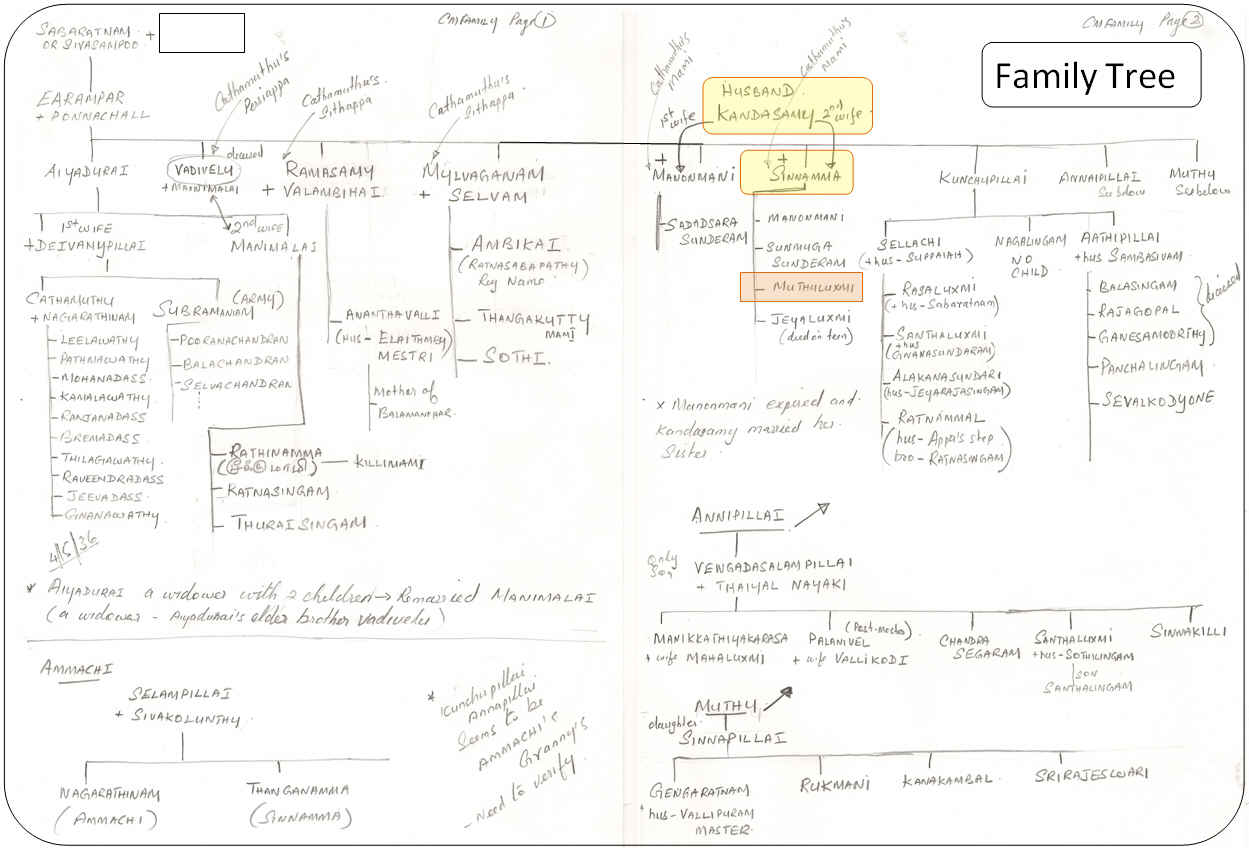 CMFAMILY Page 1
SABARATNAM +
OR SIVASAMPOO
EARAMPAR
+ PONNACHALL
Cathamuthu's
Periappa
Cathamuthu's
Sithappa
Cathamuthu's
Sithappa
AIYADURAI
VADIVELU deceased
+ MANIMALAI
RAMASAMY
+ VALAMBIHAI
MYLVAGANAM
+ SELVAM
1st WIFE
+ DEIVANYPILLAI
2nd WIFE
MANIMALAI
CATHAMUTHU
+ NAGARATHINAM
LEELAWATHY
PATHMAWATHY
MOHANADASS
KAMALAWATHY
RANJANADASS
BREMADASS
THILAGAWATHY
RAVEENDRADASS
JEEVADASS
GNANAWATHY
4/5/36
SUBRAMANIAM (ARMY)
POORANACHANDRAN
BALACHANDRAN
SELVACHANDRAN
RATHINAMMA
KILLIMAMI
RATNASINGAM
THURAISINGAM
ANANTHAVALLI
(hus - ELAITHMBY
MESTRI)
Mother of
BALAMANOHAR
AMBIKAI
(RATNASABAPATHY
Reg Name
THANGAKUTTY
MAMI
SOTHI.
* AIYADURAI a widower with 2 children → Remarried MANIMALAI
(a widower - Aiyadurai's elder brother Vadivelu)
AMMACHI
SELAMPILLAI
+ SIVAKOLUNTHY
NAGARATHINAM
(AMMACHI)
THANGANAMMA
(SINNAMMA)
* Kunchupillai
Annapillai
Seems to be
AMMACHI's
Granny's
- Need to verify.
CMFAMILY Page 2
Family Tree
Cathamuthu's
Mami
Cathamuthu's
Mami
HUSBAND
1st wife KANDASAMY 2nd wife
+
MANONMANI
+
SINNAMMA
KUNCHUPILLAI
ANNAPILLAI
Subdow
MUTHY
Subdow
SADADSARA
SUNDERAM
MANONMANI
SUNMUGA
SUNDERAM
MUTHULUXMI
JEYALUXMI
(died on tern)
SELLACHI
(+ hus - SUPPAIAH)
RASALUXMI
(+ hus - Sabaratnam)
SANTHALUXMI
(+ hus
GNANASUNDARAM)
ALAKANASUNDARI
(hus - JEYARAJASINGAM)
RATNAMMAL
(hus - Appa's step
bro - RATNASINGAM)
NAGALINGAM
NO
CHILD
AATHIPILLAI
+ hus SAMBASIVAM
BALASINGAM
RAJAGOPAL
GANESAMOORTHY
deceased
PANCHALINGAM
SEVALKODYONE
x Manonmani expired and
Kandasamy married her
Sister
ANNIPILLAI
Only
Son
VENGADASALAMPILLAI
+ THAIYAL NAYAKI
MANIKKATHIYAKARASA
+ wife MAHALUXMI
PALANIVEL
+ wife VALLIKODI
CHANDRA
SEGARAM
SANTHALUXMI
+ hus - SOTHILINGAM
son
SANTHALINGAM
SINNAKILLI
MUTHY
daughter
SINNAPILLAI
GENGARATNAM
+ hus - VALLIPURAM
MASTER
RUKMANI
KANAKAMBAL
SRIRAJESWARI